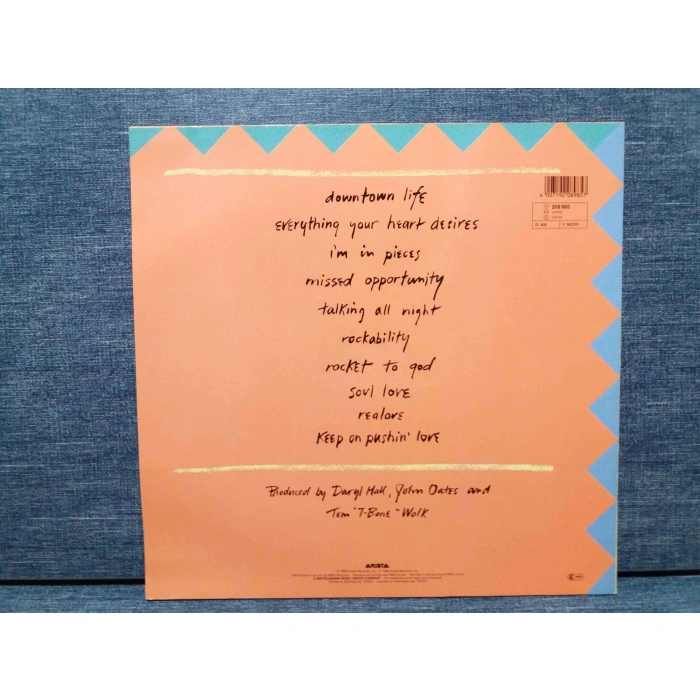 downtown life
everything your heart desires
i'm in pieces
missed opportunity
talking all night
rockability
rocket to god
soul love
realove
Keep on pushin' love
Produced by Daryl Hall, John Oates and
Tom "T-Bone" Wolk
ARISTA